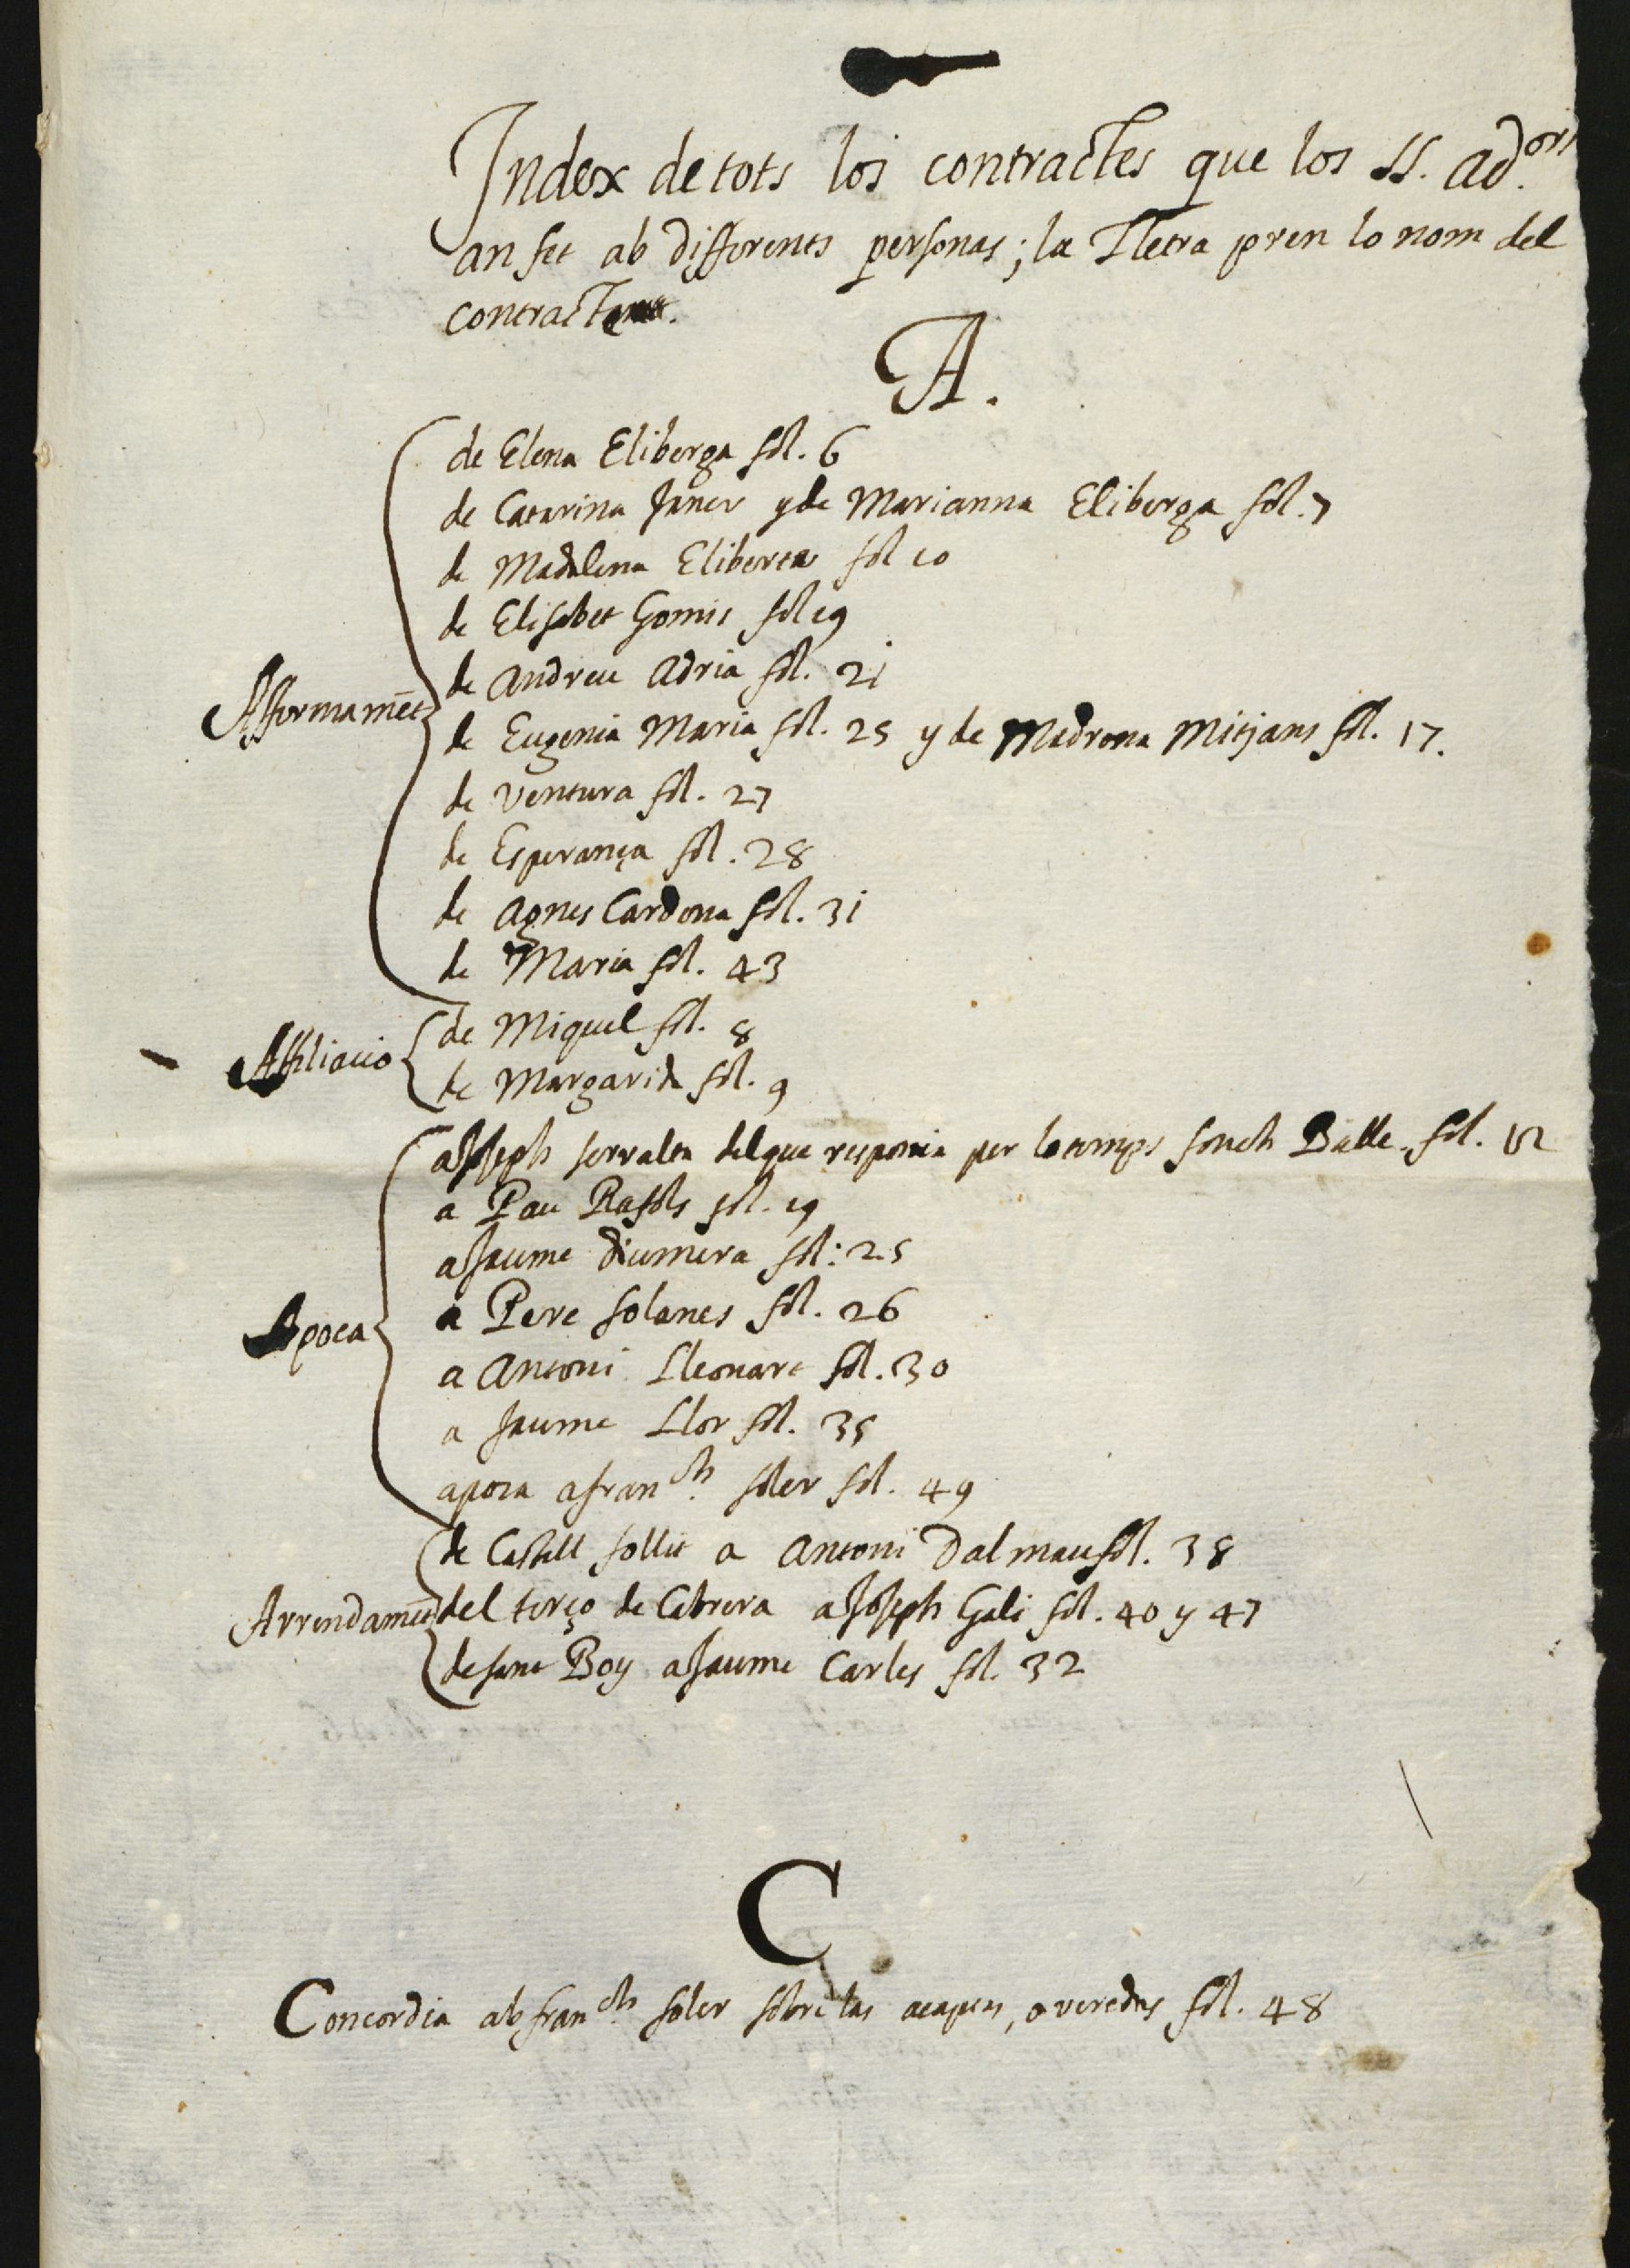 Index de tots los contractes que los SS. ad.ors
an fet ab differents personas; la Lletra pren lo nom del
contracte.
A.
Afformamēt
de Elena Eliberga fol. 6
de Catarina Janer y de Marianna Eliberga fol. 7
de Madalena Eliberta fol 10
de Elisabet Gomis fol 19
de Andreu Adria fol. 21
de Eugenia Maria fol. 25 y de Madrona Mitjans fol. 17.
de Ventura fol. 27
de Esperança fol. 28
de Agnes Cardona fol. 31
de Maria fol. 43
Affiliacio
de Miquel fol. 8
de Margarida fol. 9
Apoca
a Joseph serralta del que responia per lo temps fonch Balle. fol. 12
a Pau Rafols fol. 19
a Jaume diumera fol: 25
a Pere solanes fol. 26
a Antoni Lleonart fol. 30
a Jaume Llor fol. 35
apoca a fran.ch soler fol. 49
Arrendamēt
de Castell follit a Antoni Dalmau fol. 38
del terço de Cabrera a Joseph Gali fol. 40 y 47
de sant Boy a Jaume Carles fol. 32
C
Concordia ab fran.ch soler sobre las acapces, o veredas fol. 48